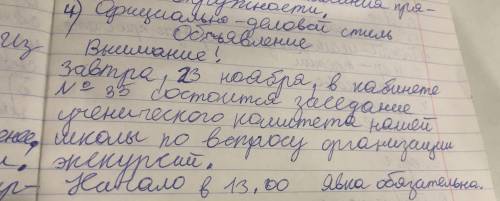 ния пря-
4) Официально-деловой стиль
Объявление
Внимание!
Завтра, 23 ноября, в кабинете
№ 35 состоится заседание
ученического комитета нашей
школы по вопросу организации
экскурсий.
Начало в 13.00 явка обязательна.